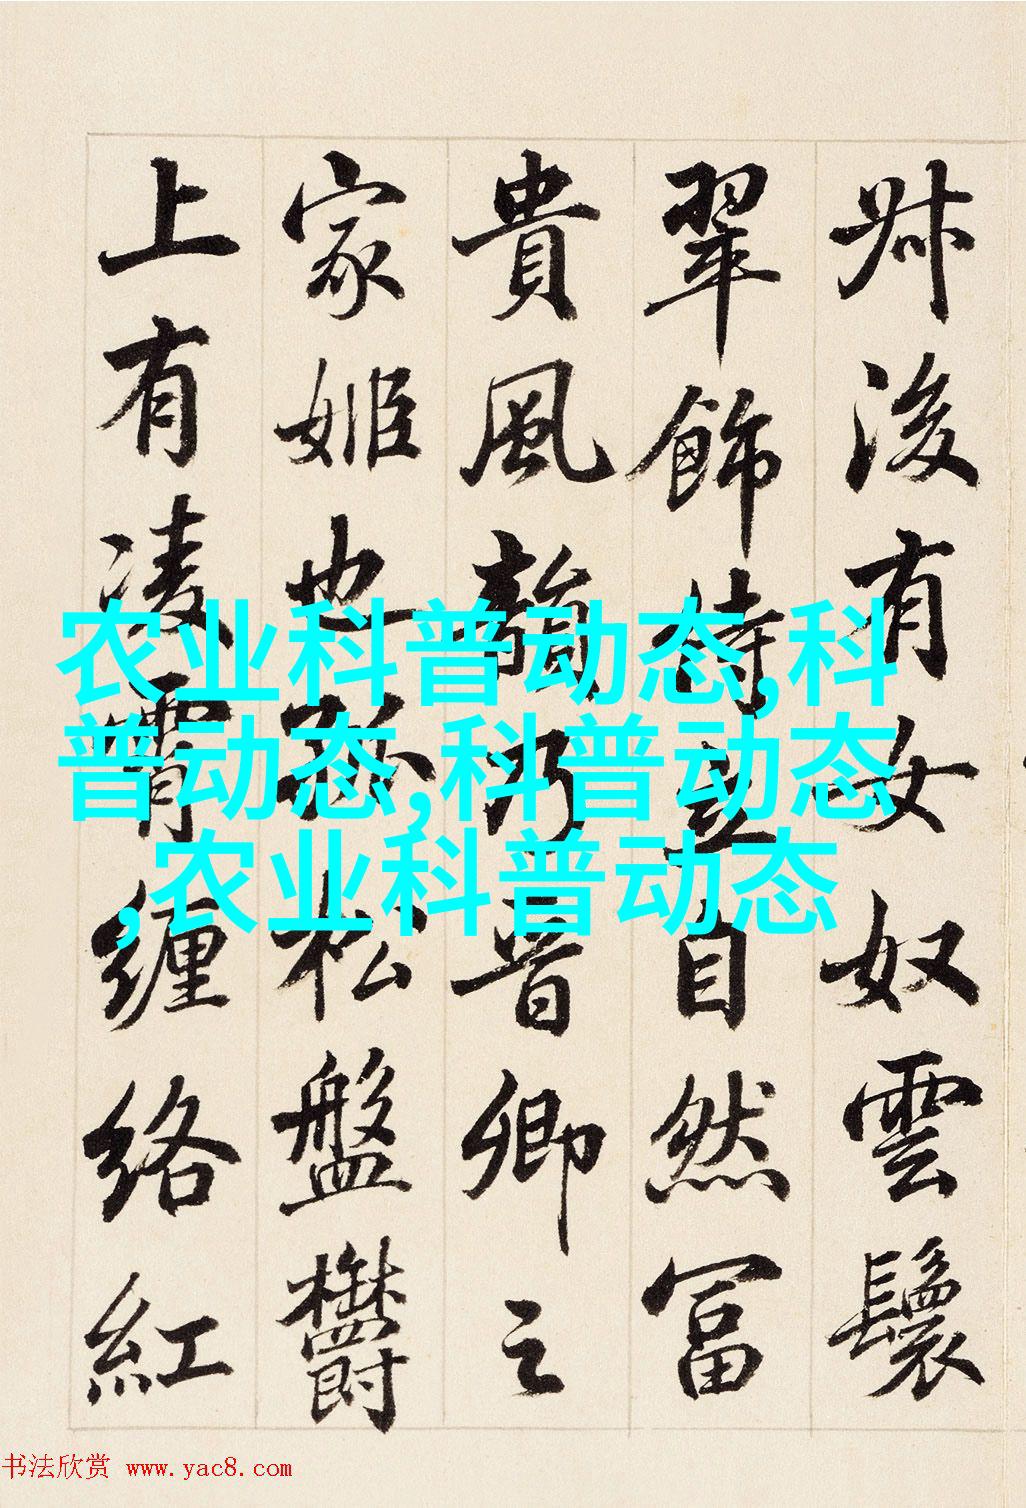 卝後有女奴雲鬟
翠飾侍立自然富
貴風韻乃晉卿之
家姬也孤松盤欝
上有凌霄纏絡紅
农业科普动态,科
普动态,科普动态
,农业科普动态
书法欣赏 www.yac8.com